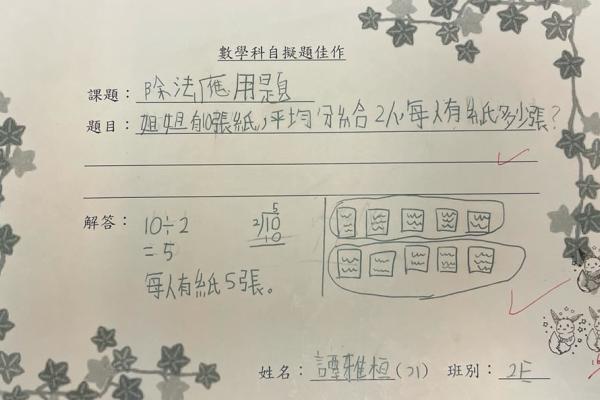 數學科自擬題佳作
課題：除法應用題
題目：姐姐有10張紙，平均分給2人，每人有紙多少張？
解答：
10÷2
=5
每人有紙5張。
5
2)10
10
姓名：譚雅桓(21) 班別：2E